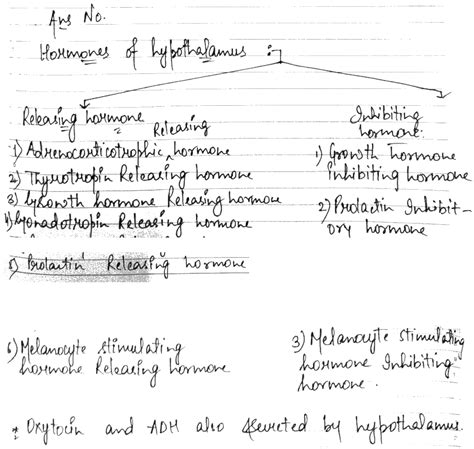 Ans No.
Hormones of hypothalamus :-
Releasing hormone
Inhibiting hormone.
1) Adrenocorticotrophic Releasing hormone
2) Thyrotropin Releasing hormone
3) Growth hormone Releasing hormone
4) Gonadotropin Releasing hormone
5) Prolactin Releasing hormone
6) Melanocyte stimulating
hormone Releasing hormone
1) Growth hormone
inhibiting hormone
2) Prolactin Inhibit-
ory hormone
3) Melanocyte stimulating
hormone Inhibiting
hormone.
* Oxytocin and ADH also secreted by hypothalamus.